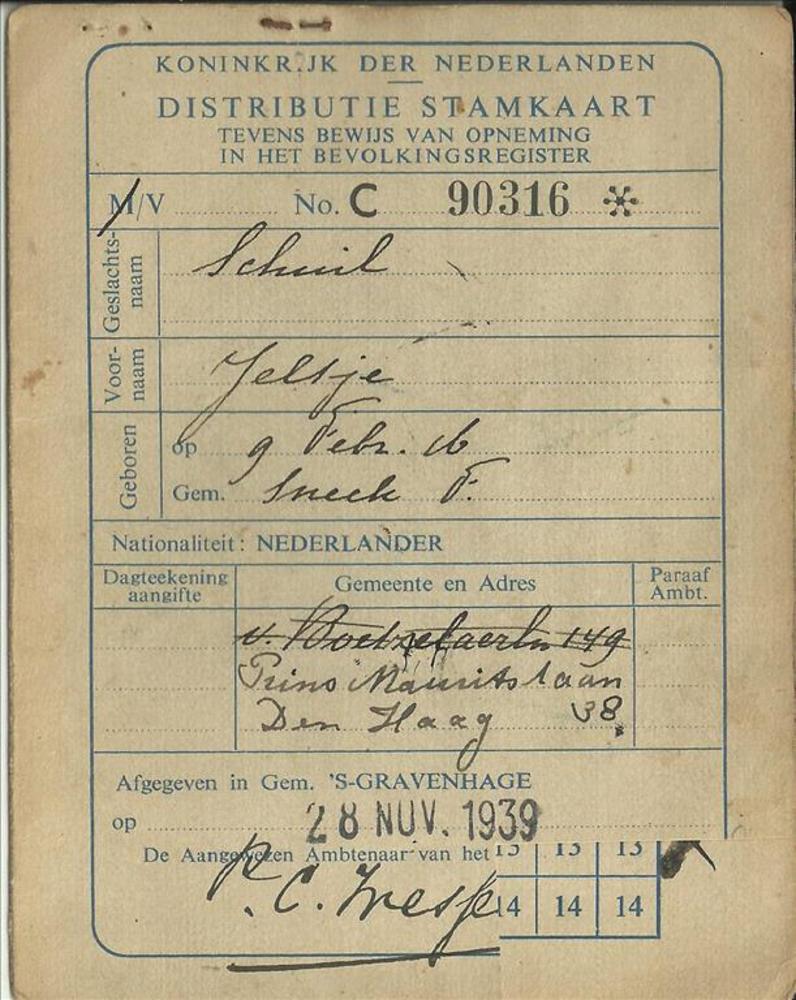 KONINKRIJK DER NEDERLANDEN
DISTRIBUTIE STAMKAART
TEVENS BEWIJS VAN OPNEMING
IN HET BEVOLKINGSREGISTER
M/V No. C 90316 *
Geslachts-
naam
Schuil
Voor-
naam
Jeltje
Geboren
op 9 Febr. 16
Gem. Sneek F.
Nationaliteit: NEDERLANDER
Dagteekening
aangifte
Gemeente en Adres
Paraaf
Ambt.
v. Boetzelaerln 149
Prins Mauritslaan
Den Haag 38
Afgegeven in Gem. 'S-GRAVENHAGE
op 28 NOV. 1939
De Aangewezen Ambtenaar van het
13 13 13
14 14 14